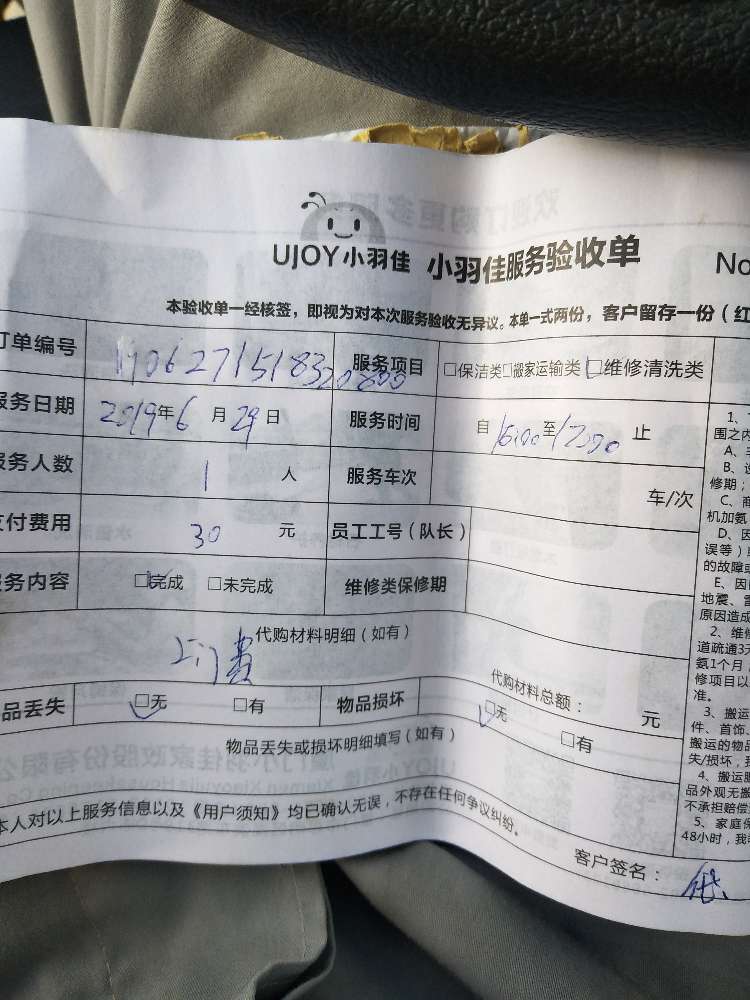 UJOY小羽佳 小羽佳服务验收单 No
本验收单一经核签，即视为对本次服务验收无异议。本单一式两份，客户留存一份（红
订单编号 1906271518320800 服务项目 □保洁类□搬家运输类□维修清洗类
服务日期 2019年6月29日 服务时间 自16:00至17:00止
服务人数 1人 服务车次 车/次
支付费用 30元 员工工号（队长）
服务内容 □完成 □未完成 维修类保修期
代购材料明细（如有）
上门费
代购材料总额： 元
品丢失 □无 □有 物品损坏 □无 □有
物品丢失或损坏明细填写（如有）
本人对以上服务信息以及《用户须知》均已确认无误，不存在任何争议纠纷。
客户签名：
1、
围之内
A、
B、
修期；
C、商
机加氨
D、因
误等）
的故障或
E、因
地震、雷
原因造成
2、维修
道疏通3天
氨1个月
修项目以
准。
3、搬运
件、首饰、
搬运的物品
失/损坏，
4、搬运
品外观无搬
不承担赔偿
5、家庭保
48小时，我